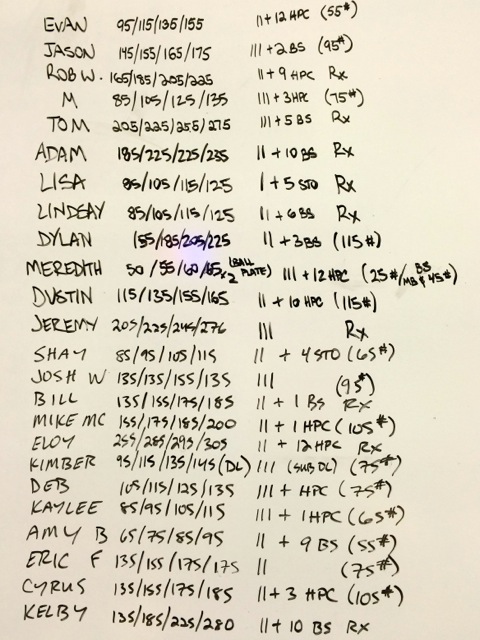 EVAN 95/115/135/155 11+12 HPC (55#)
JASON 145/155/165/175 111+2BS (95#)
ROB W. 165/185/205/225 11+9 HPC Rx
M 85/105/125/135 111+3HPC (75#)
TOM 205/225/255/275 111+5 BS Rx
ADAM 185/225/225/235 11+10 BS Rx
LISA 85/105/115/125 1+5 STO Rx
LINDSAY 85/105/115/125 11+6BS Rx
DYLAN 155/185/205/225 11+3BS (115#)
MEREDITH 50/55/60/65x2 (BALL PLATE) 111+12HPC (25#/BS MB & 45#)
DUSTIN 115/135/155/165 11+10 HPC (115#)
JEREMY 205/225/245/276 111 Rx
SHAY 85/95/105/115 11 + 4STO (65#)
JOSH W 135/135/155/135 111 (95#)
BILL 135/155/175/185 11+1 BS Rx
MIKE MC 155/175/185/200 11+1 HPC (105#)
ELOY 255/285/295/305 11+12 HPC Rx
KIMBER 95/115/135/145 (DL) 111 (SUB DL) (75#)
DEB 105/115/125/135 111 + HPC (75#)
KAYLEE 85/95/105/115 111+1HPC (65#)
AMY B 65/75/85/95 11+9 BS (55#)
ERIC F 135/155/175/175 11 (75#)
CYRUS 135/155/175/185 11+3 HPC (105#)
KELBY 135/185/225/280 11+10 BS Rx